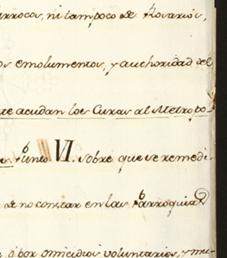 arrocos, ni tampoco de Rosarios,
os emolumentos, y authoridad del
te acudan los Curas al Metropo-
punto VI. sobre que se remedi-
de no constar en las Parroquias
ó por omicidios voluntarios, y mu-